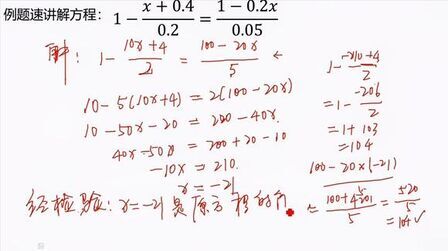 例题速讲解方程：1 - (x+0.4)/0.2 = (1-0.2x)/0.05
解：1 - (10x+4)/2 = (100-20x)/5 ←
10-5(10x+4) = 2(100-20x)
10-50x-20 = 200-40x
40x-50x = 200+20-10
-10x = 210
x = -21
经检验：x = -21 是原方程的
1 - (-210+4)/2
= 1 - (-206)/2
= 1+103
= 104
100-20×(-21)
= /5 = 520/5
= 104 ✓